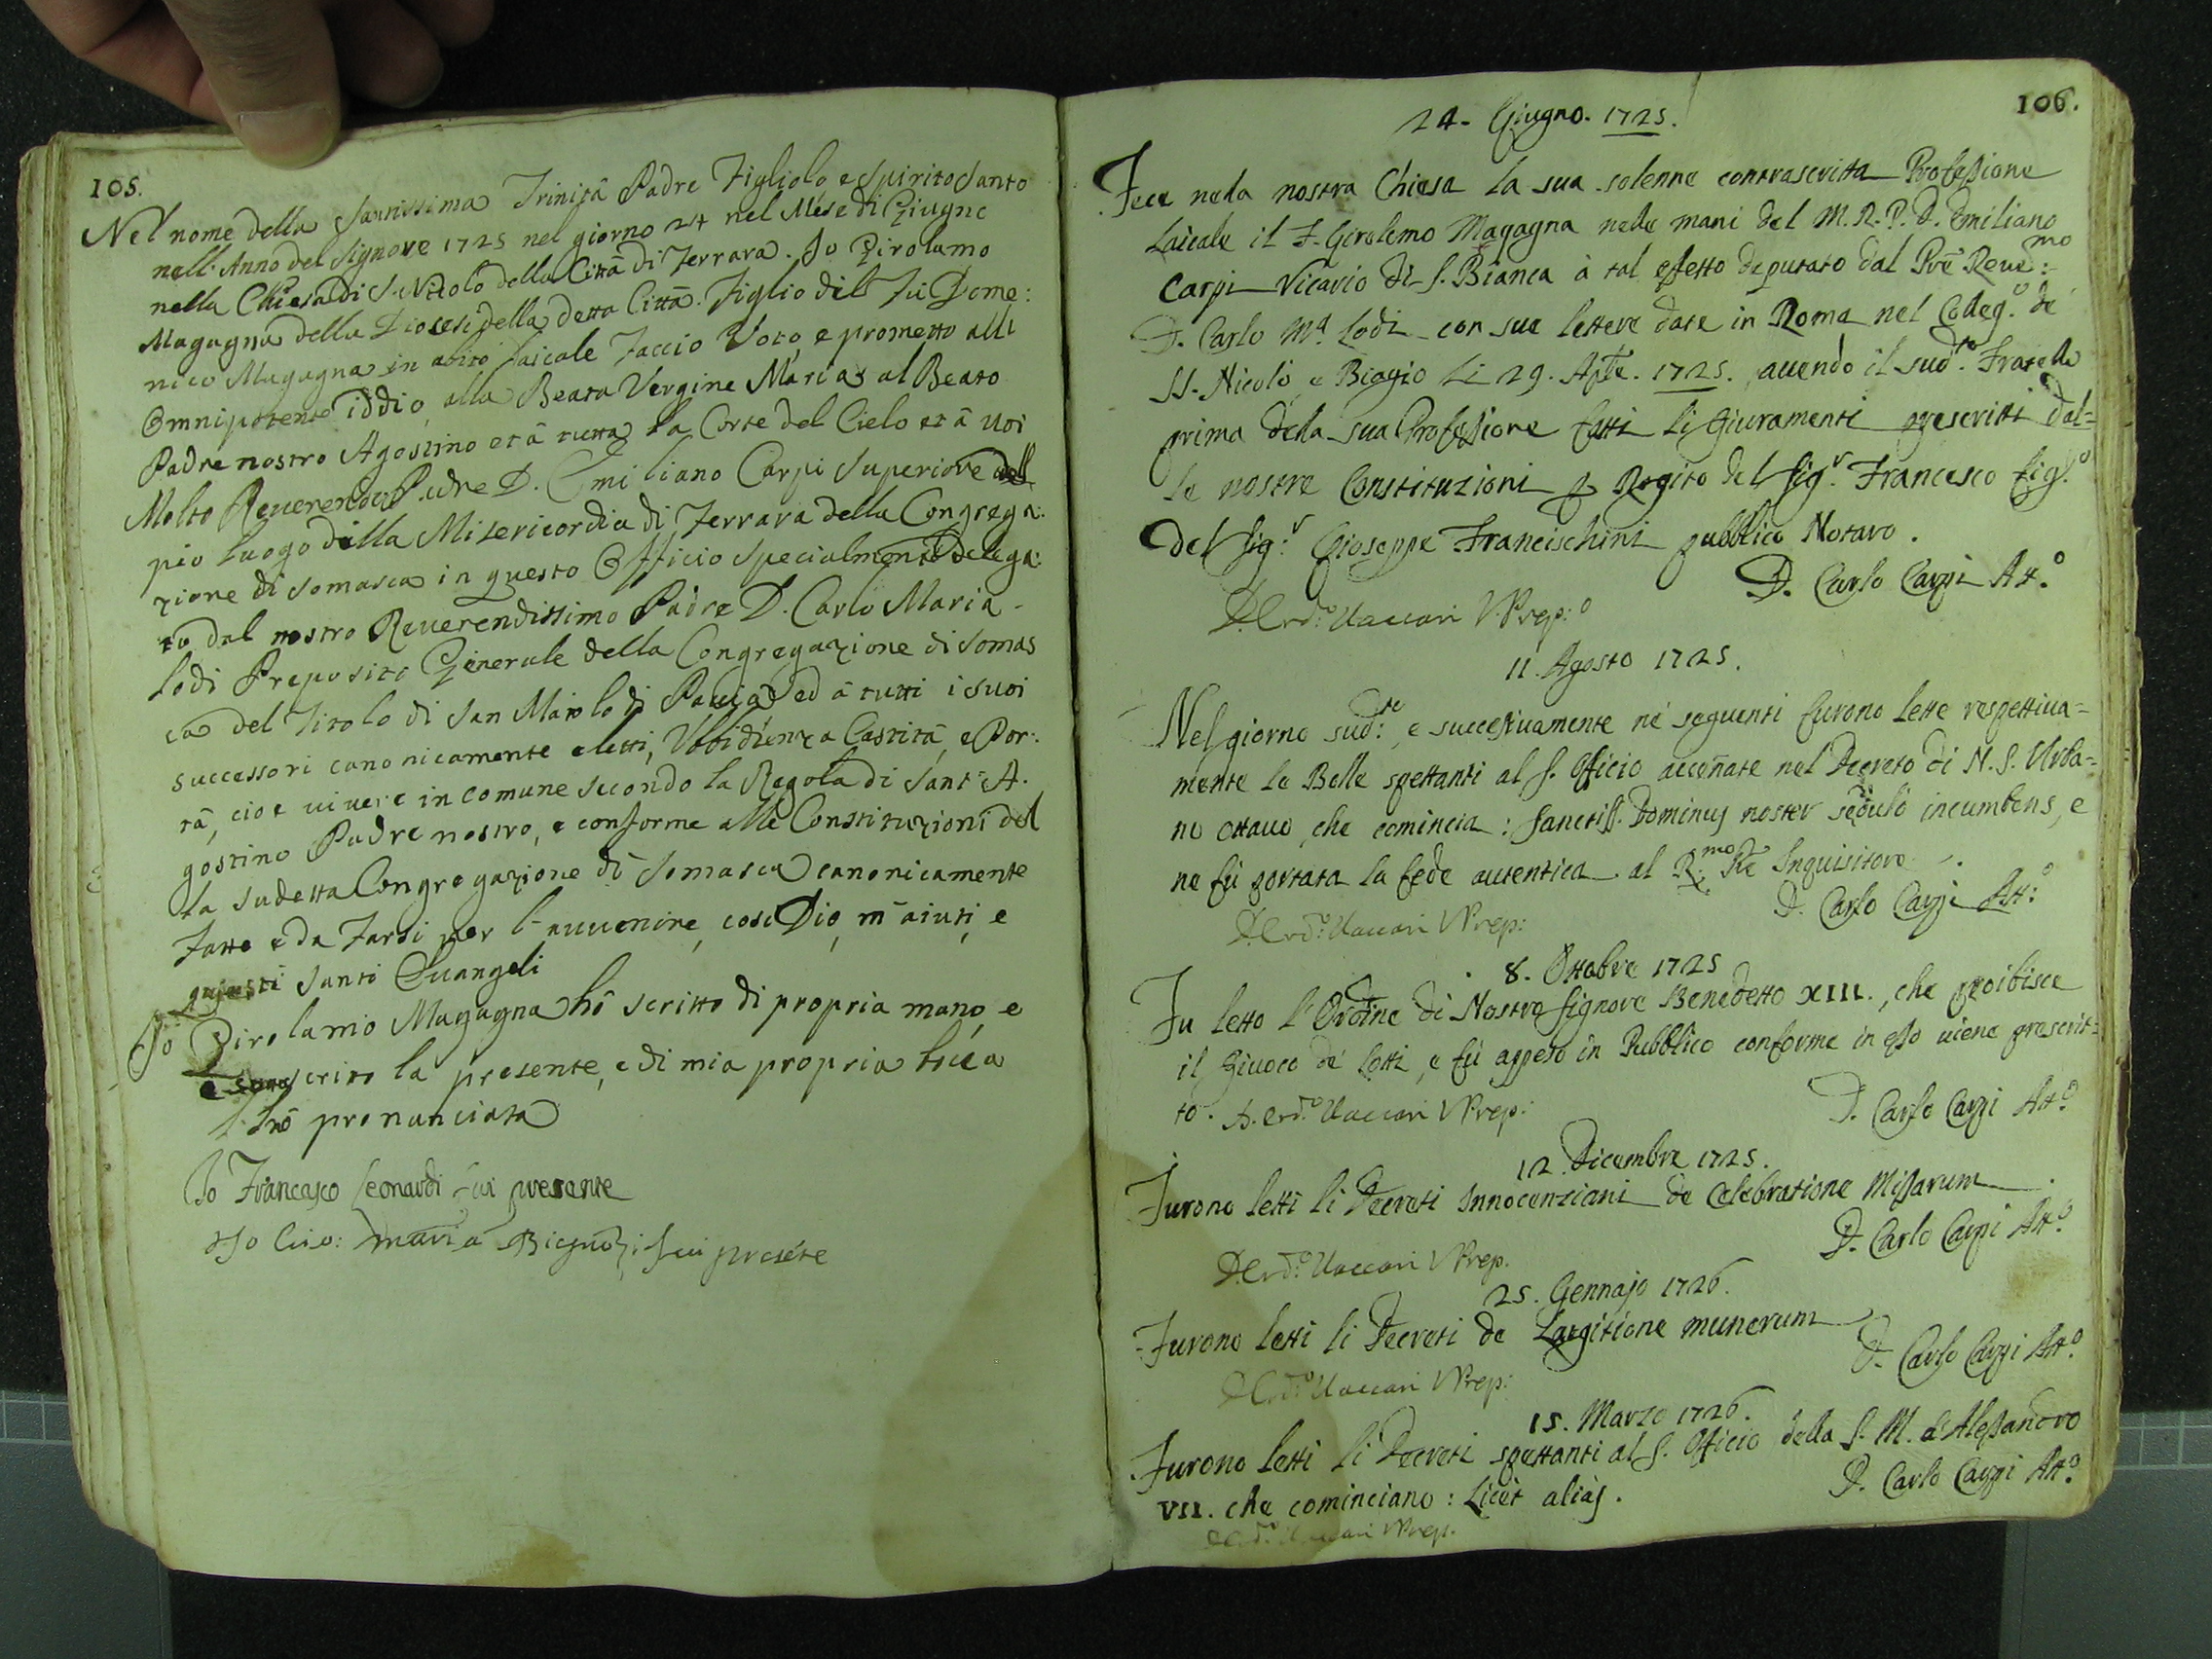 105.
Nel nome della Santissima Trinità Padre Figliolo e Spirito Santo
nell'Anno del Signore 1725 nel giorno 24 nel Mese di Giugno
nella Chiesa di S. Nicolo della Città di Ferrara. Io Girolamo
Magagna della Diocesi della detta Città. Figlio del Fù Dome:
nico Magagna in abito Laicale Faccio Voto, e prometto all'
Omnipotente iddio, alla Beata Vergine Maria, al Beato
Padre nostro Agostino et à tutta la Corte del Cielo et à Voi
Molto Reverendo Padre D. Emiliano Carpi Superiore dell
pio luogo della Misericordia di Ferrara della Congrega:
zione di Somasca in questo Officio specialmente Delega:
to dal nostro Reverendissimo Padre D. Carlo Maria
Lodi Preposito Generale della Congregazione di Somas
ca del Titolo di San Maiolo di Pavia ed à tutti i suoi
successori canonicamente eletti, Vbbidienza Castità, e Pover:
tà, cioe vivere in comune secondo la Regola di Sant'A.
gostino Padre nostro, e conforme alle Constituzioni del
la sudetta Congregazione di Somasca canonicamente
Fatte e da Farsi per l'auuenire, così Dio m'aiuti, e
questi Santi Euangeli
Io Girolamo Magagna hò scritto di propria mano, e
e sottoscrito la presente, e di mia propria boca
l'hò pronunciata
Io Francesco Leonardi fui presente
Io Gio: Maria Bignozi fui preséte
106.
24. Giugno. 1725.
Fece nella nostra Chiesa la sua solenne contrascritta Professione
Laicale il F. Girolemo Magagna nelle mani del M. R. P. D. Emiliano
Carpi Vicario di S. Bianca à tal effetto deputato dal Prē Reue:mo
D. Carlo Mª Lodi con sue lettere date in Roma nel Colleg.º de'
SS. Nicolò, e Biagio li 29. Aple. 1725., auendo il sud.to Fratello
prima della sua Professione fatti li Giuramenti prescritti dal=
le nostre Constituzioni p Rogito del Sig.r Francesco figl.º
del Sig.r Gioseppe Francischini pubblico Notaro.
D. Carlo Carpi Att.º
D. Erd.º Vaccari V. Prep:º
11. Agosto 1725.
Nel giorno sud:te, e successivamente nè seguenti furono lette respettiua=
mente le Bolle spettanti al S. Officio accen̄ate nel Decreto di N. S. Urba=
no ottauo, che comincia: Sanctiss. Dominus noster sedulò incumbens, e
ne fù portata la fede autentica al R.mo Pre Inquisitore.
D. Carlo Carpi Att:º
D. Erd:º Vaccari V Prep:
8. Ottobre 1725
Fu letto l'Ordine di Nostro Signore Benedetto XIII., che proibisce
il Giuoco de' Lotti, e fù appeso in Pubblico conforme in esso uiene prescrit=
to. D. Erd.º Vaccari V Prep:
D. Carlo Carpi Att.º
12. Dicembre 1725.
Furono letti li Decreti Innocenziani de Celebratione Missarum.
D. Carlo Carpi Att.º
D. Erd:º Vaccari V Prep.
25. Gennajo 1726.
Furono letti li Decreti de Largitione munerum
D. Carlo Carpi Att.º
D. Erd:º Vaccari V Prep:
15. Marzo 1726.
Furono letti li Decreti spettanti al S. Officio della S. M. d'Alessandro
VII. che cominciano: Licèt aliàs.
D. Carlo Carpi Att.º
D. Erd:º Vaccari V Prep.